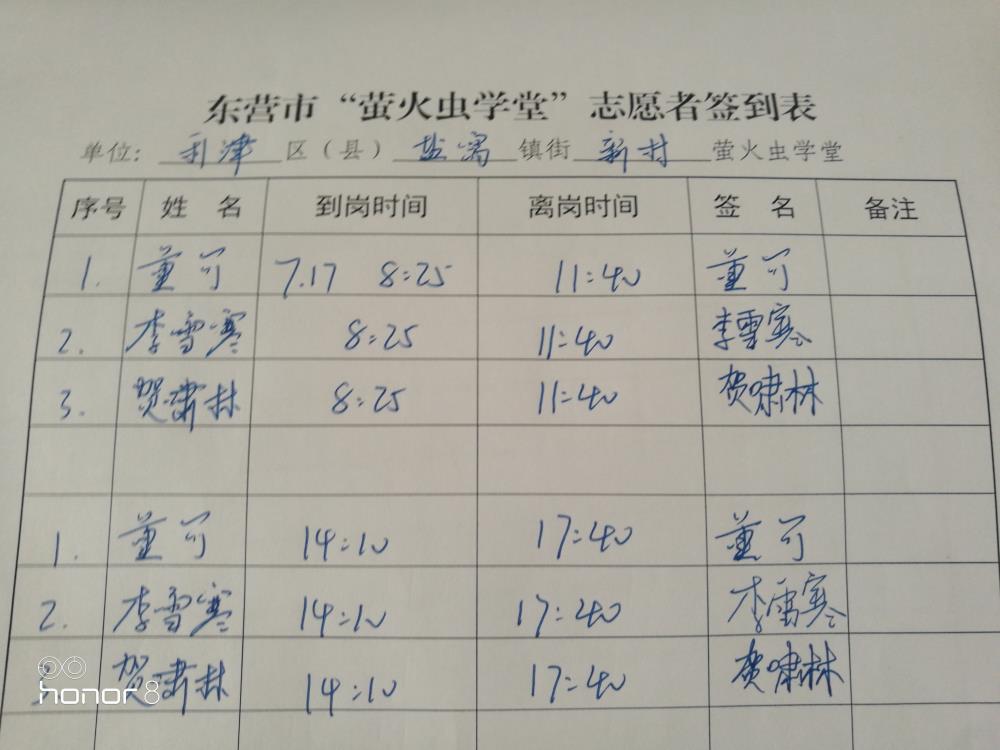 东营市“萤火虫学堂”志愿者签到表
单位：利津区（县）盐窝镇街新村萤火虫学堂
序号 姓 名 到岗时间 离岗时间 签 名 备注
1. 董可 7.17 8:25 11:40 董可
2. 李雪寒 8:25 11:40 李雪寒
3. 贺啸林 8:25 11:40 贺啸林
1. 董可 14:10 17:40 董可
2. 李雪寒 14:10 17:40 李雪寒
3. 贺啸林 14:10 17:40 贺啸林
honor 8